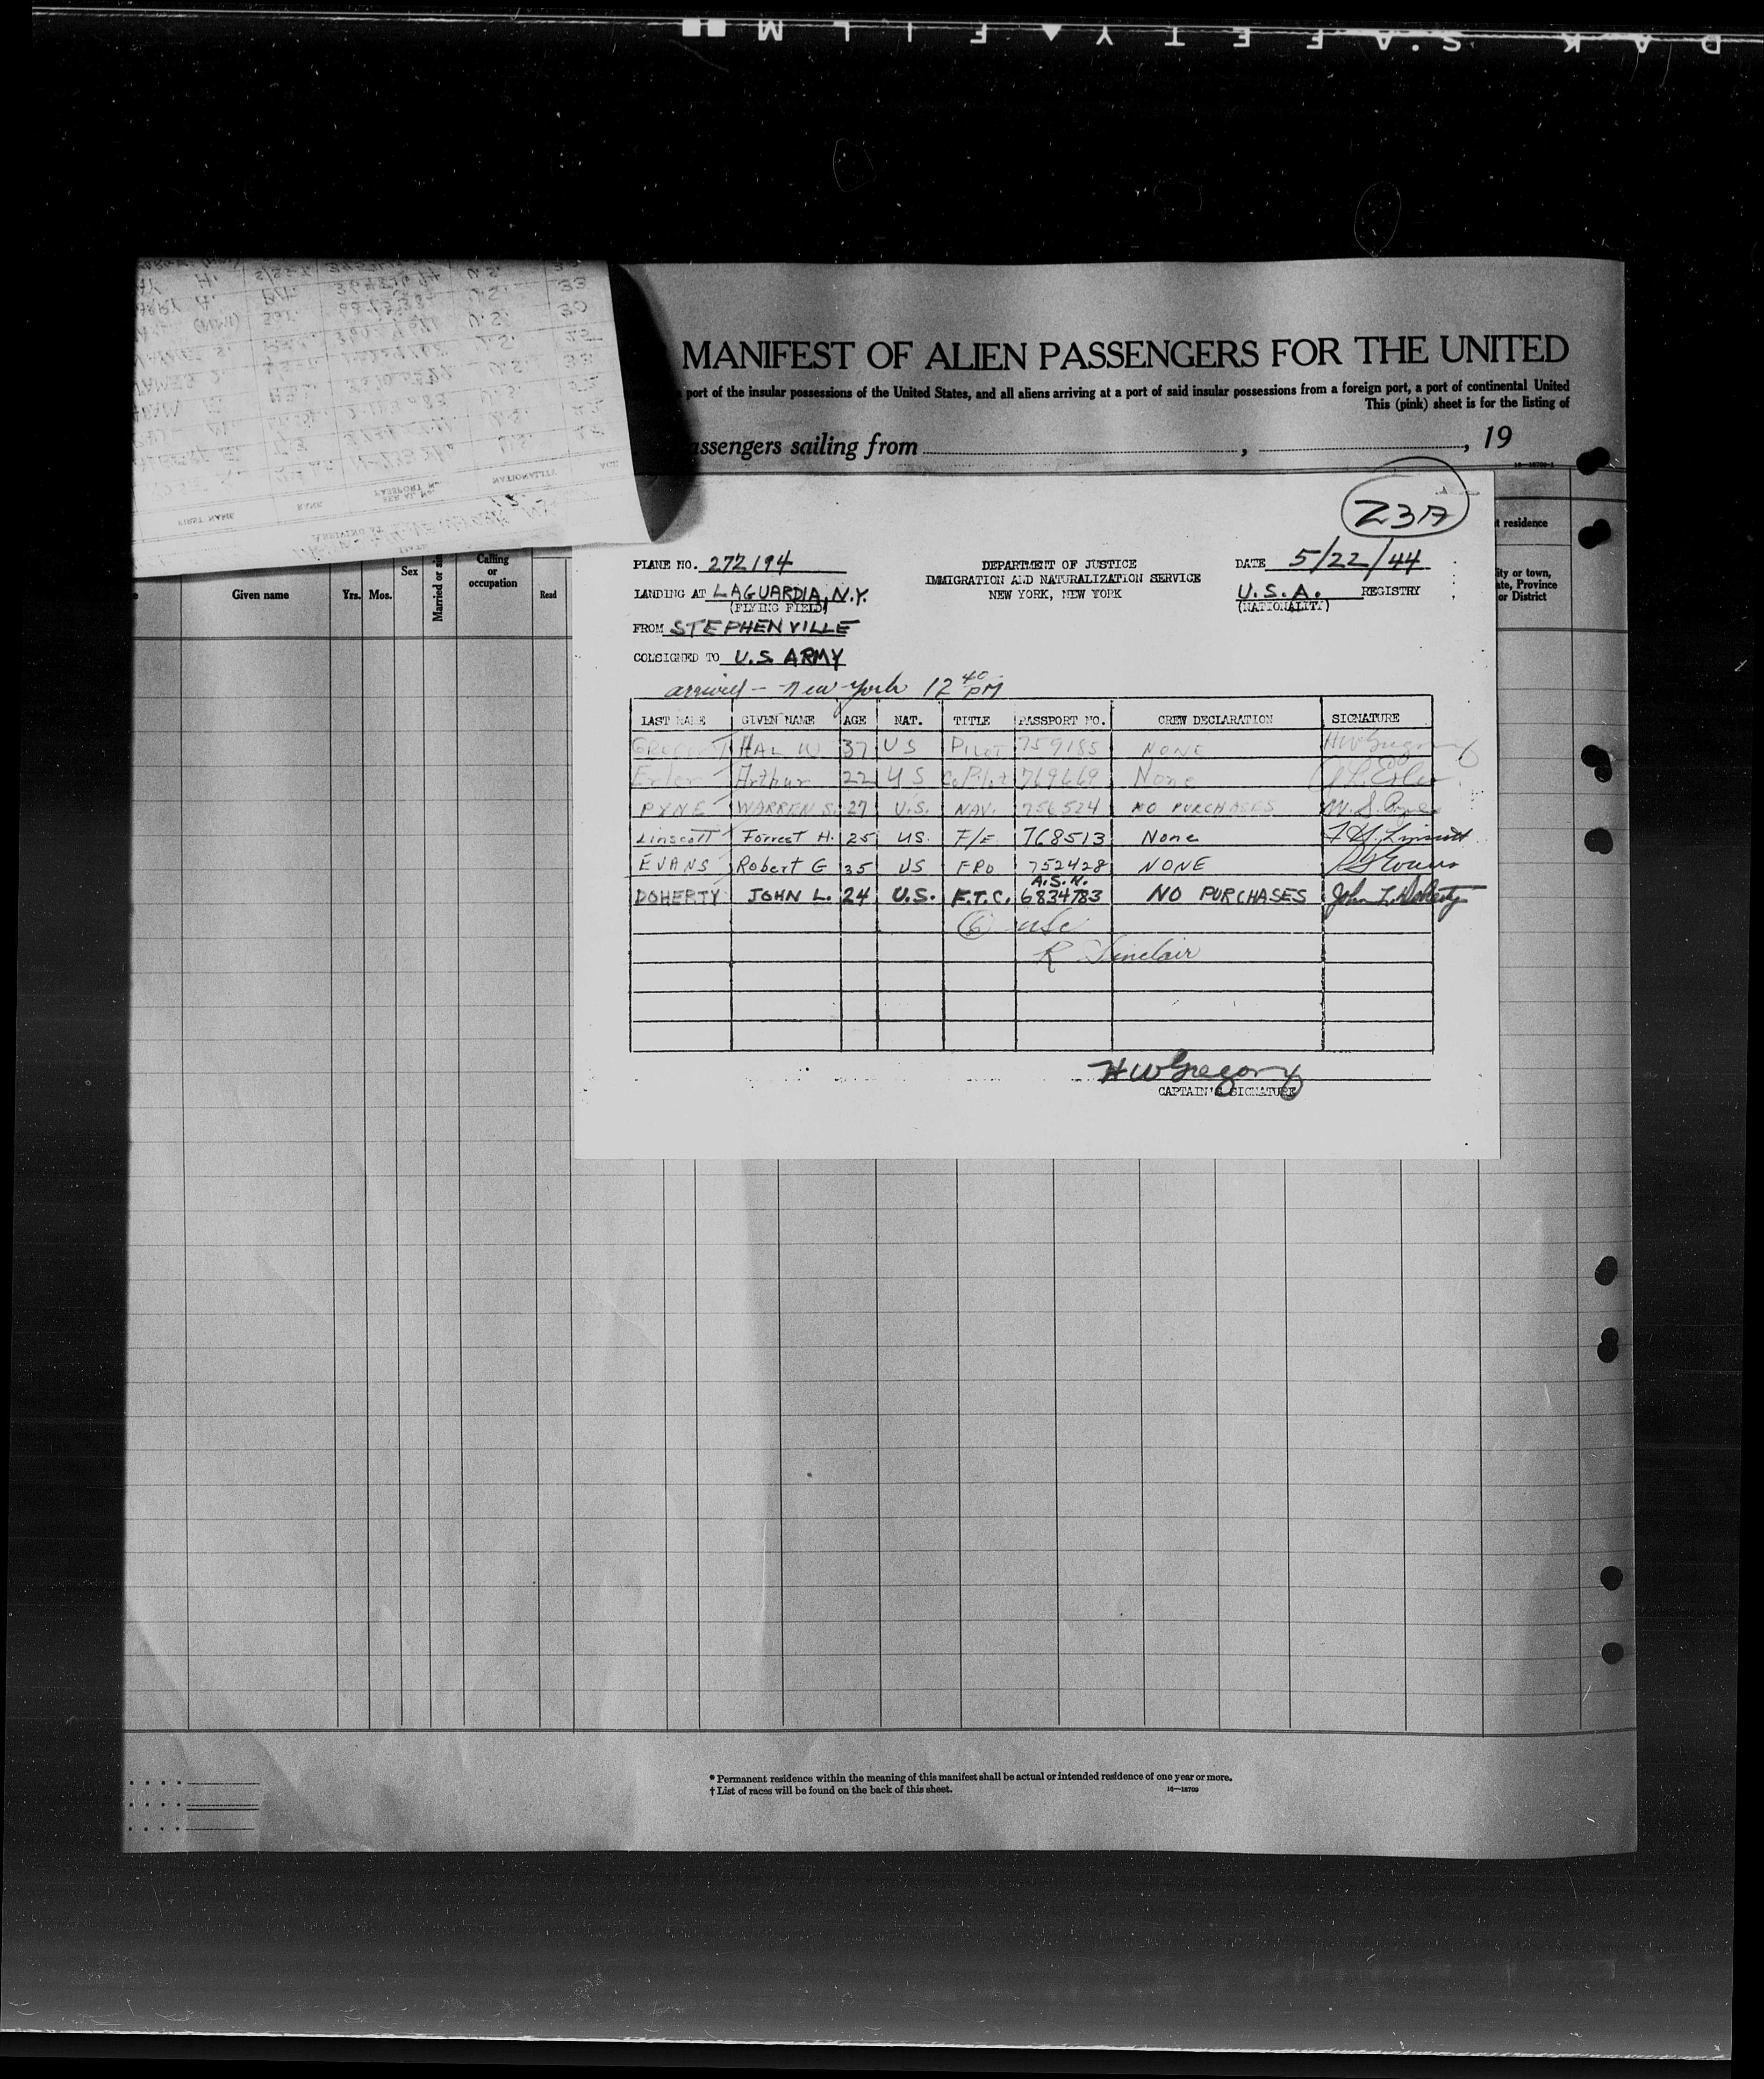 D A K S.A F E T Y ▲ F I L M
MANIFEST OF ALIEN PASSENGERS FOR THE UNITED
port of the insular possessions of the United States, and all aliens arriving at a port of said insular possessions from a foreign port, a port of continental United
This (pink) sheet is for the listing of
assengers sailing from , , 19
FIRST NAME RANK SERIAL No. PASSPORT No. NATIONALITY AGE
Given name Yrs. Mos. Sex Married or si Calling or occupation Read
t residence
ity or town,
ate, Province
or District
Z3A
PLANE NO. 272194 DEPARTMENT OF JUSTICE DATE 5/22/44
IMMIGRATION AND NATURALIZATION SERVICE
LANDING AT LAGUARDIA, N.Y. NEW YORK, NEW YORK U.S.A. REGISTRY
(FLYING FIELD) (NATIONALITY)
FROM STEPHENVILLE
CONSIGNED TO U.S ARMY
arrived - New York 12 40 PM
LAST NAME GIVEN NAME AGE NAT. TITLE PASSPORT NO. CREW DECLARATION SIGNATURE
GREGORY HAL W 37 US PILOT 759185 NONE HW Gregory
Erler Arthur 22 US CoPilot 769669 None
PYNE WARREN S. 27 U.S. NAV. 756524 NO PURCHASES W. S. Pyne
Linscott Forrest H. 25 US. F/E 768513 None F. H. Linscott
EVANS Robert G 35 US FRO 752428 NONE R G Evans
DOHERTY JOHN L. 24 U.S. F.T.C. A.S.N. 6834783 NO PURCHASES John L. Doherty
(6) usc
R Sinclair
H W Gregory
CAPTAIN'S SIGNATURE
* Permanent residence within the meaning of this manifest shall be actual or intended residence of one year or more.
† List of races will be found on the back of this sheet. 16—18709